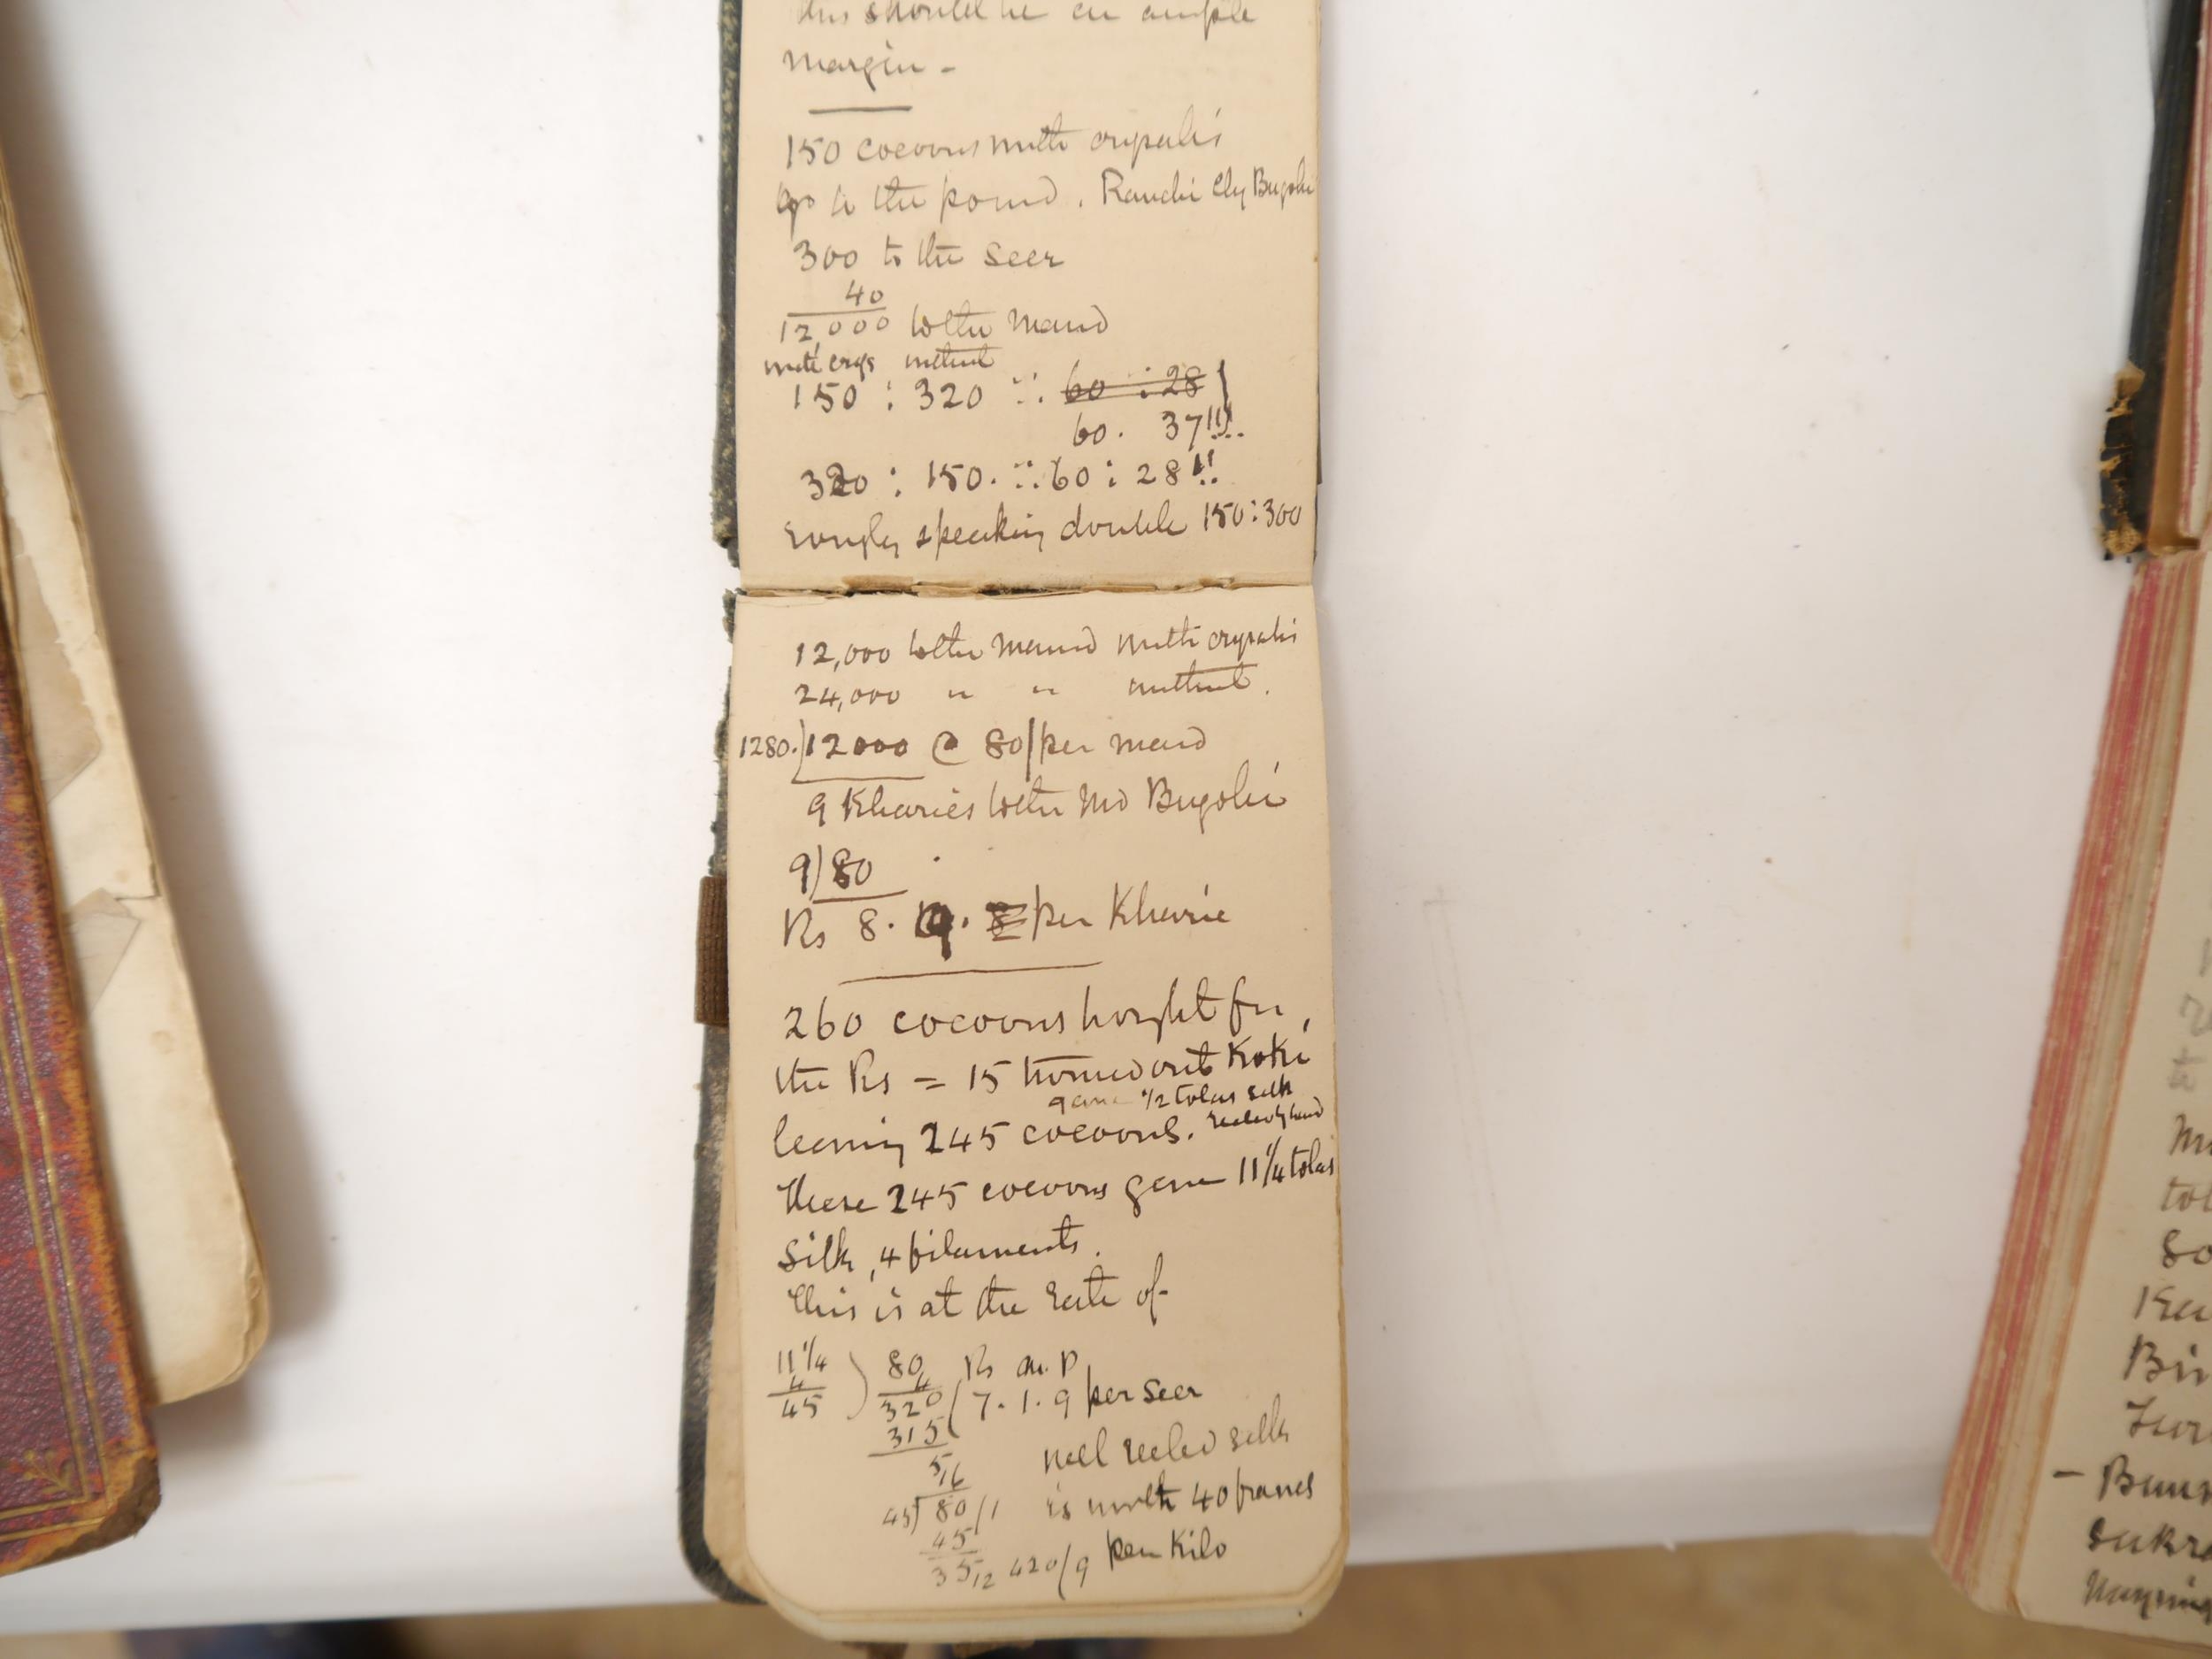 this should be an ample
margin -
150 cocoons with crysalis
go to the pound. Ranchi Bugohi
300 to the seer
40
12,000 to the maund
with crys without
150 : 320 :: 60 : 28
60. 37!!!
320 : 150. :: 60 : 28!!
roughly speaking double 150:300
12,000 to the maund with crysalis
24,000 " " without.
1280.)12000 @ 80/per maund
9 Kharies to the Md Bugohi
9)80
Rs 8. per Kharie
260 cocoons bought for
the Rs = 15 turned out Koki
gave 1/2 tolas silk
leaving 245 cocoons. reeled by hand
These 245 cocoons gave 11 1/4 tolas
silk, 4 filaments.
This is at the rate of
11 1/4 ) 80 Rs an. P
4 4
45 320 ( 7. 1. 9 per seer
315
5/16 well reeled silk
45) 80 /1 is worth 40 francs
45
35/12 420/9 per Kilo